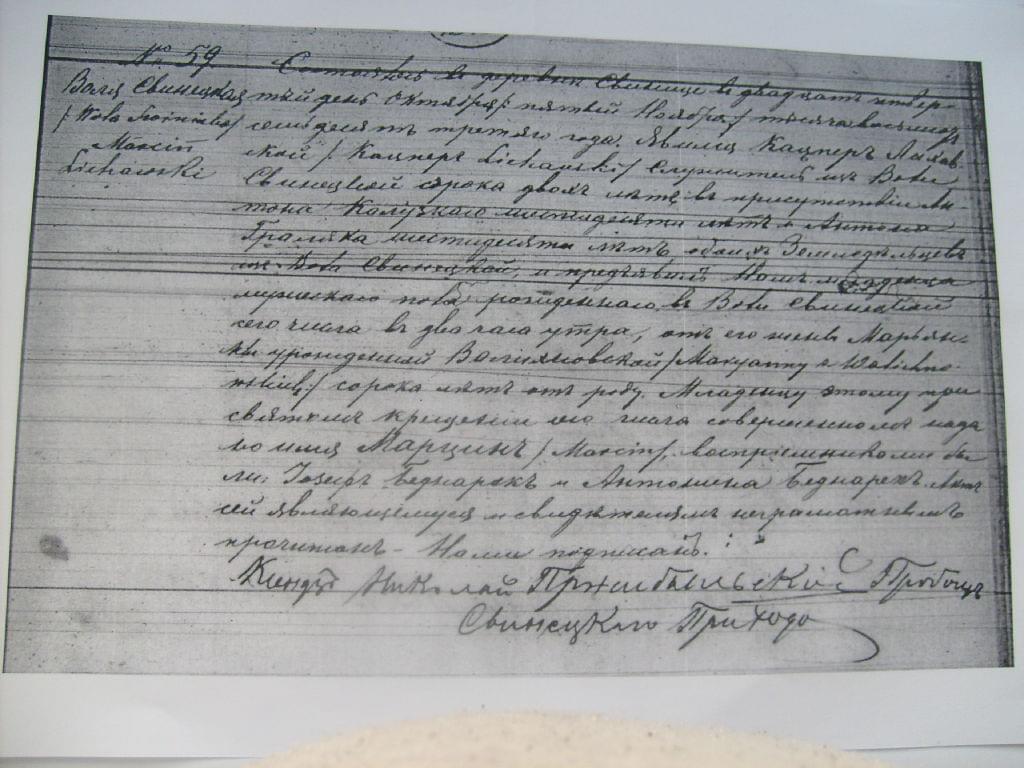 № 59
Воля Свинецкая
/Wola Świniecka/
Marcin
Lichawski
Состоялось въ деревни Свинице въ двадцать четвер-
тый день Октября/ пятый Ноября/ тысяча восемьсотъ
семьдесятъ третяго года. Явился Кацперъ Лихав-
ской /Kacper Lichawski/ служитель изъ Воли
Свинецкой сорока двохъ летъ въ присутствіи Ан-
тона шестидесяти летъ и Антона
шестидесяти летъ обоихъ Земледельцевъ
изъ Воли Свинецкой, и предъявилъ Намъ младенца
мужескаго пола рожденнаго въ Воли Свинецкой
сего числа въ два часа утра, отъ его жены Марьян-
ны урожденной /Maryanny z
/ сорока летъ отъ роду. Младенцу этому при
святомъ крещеніи сего числа совершенномъ надa
но имя Марцинъ /Marcin/ воспріемниками бы-
ли: Іозефъ Беднарекъ и Антонина Беднарекъ. Актъ
сей являющемуся и свидетелямъ неграматнымъ
прочитанъ – Нами подписанъ.
Ксендзъ Николай Пржибыльскій Пробощъ
Свинецкаго Прихода